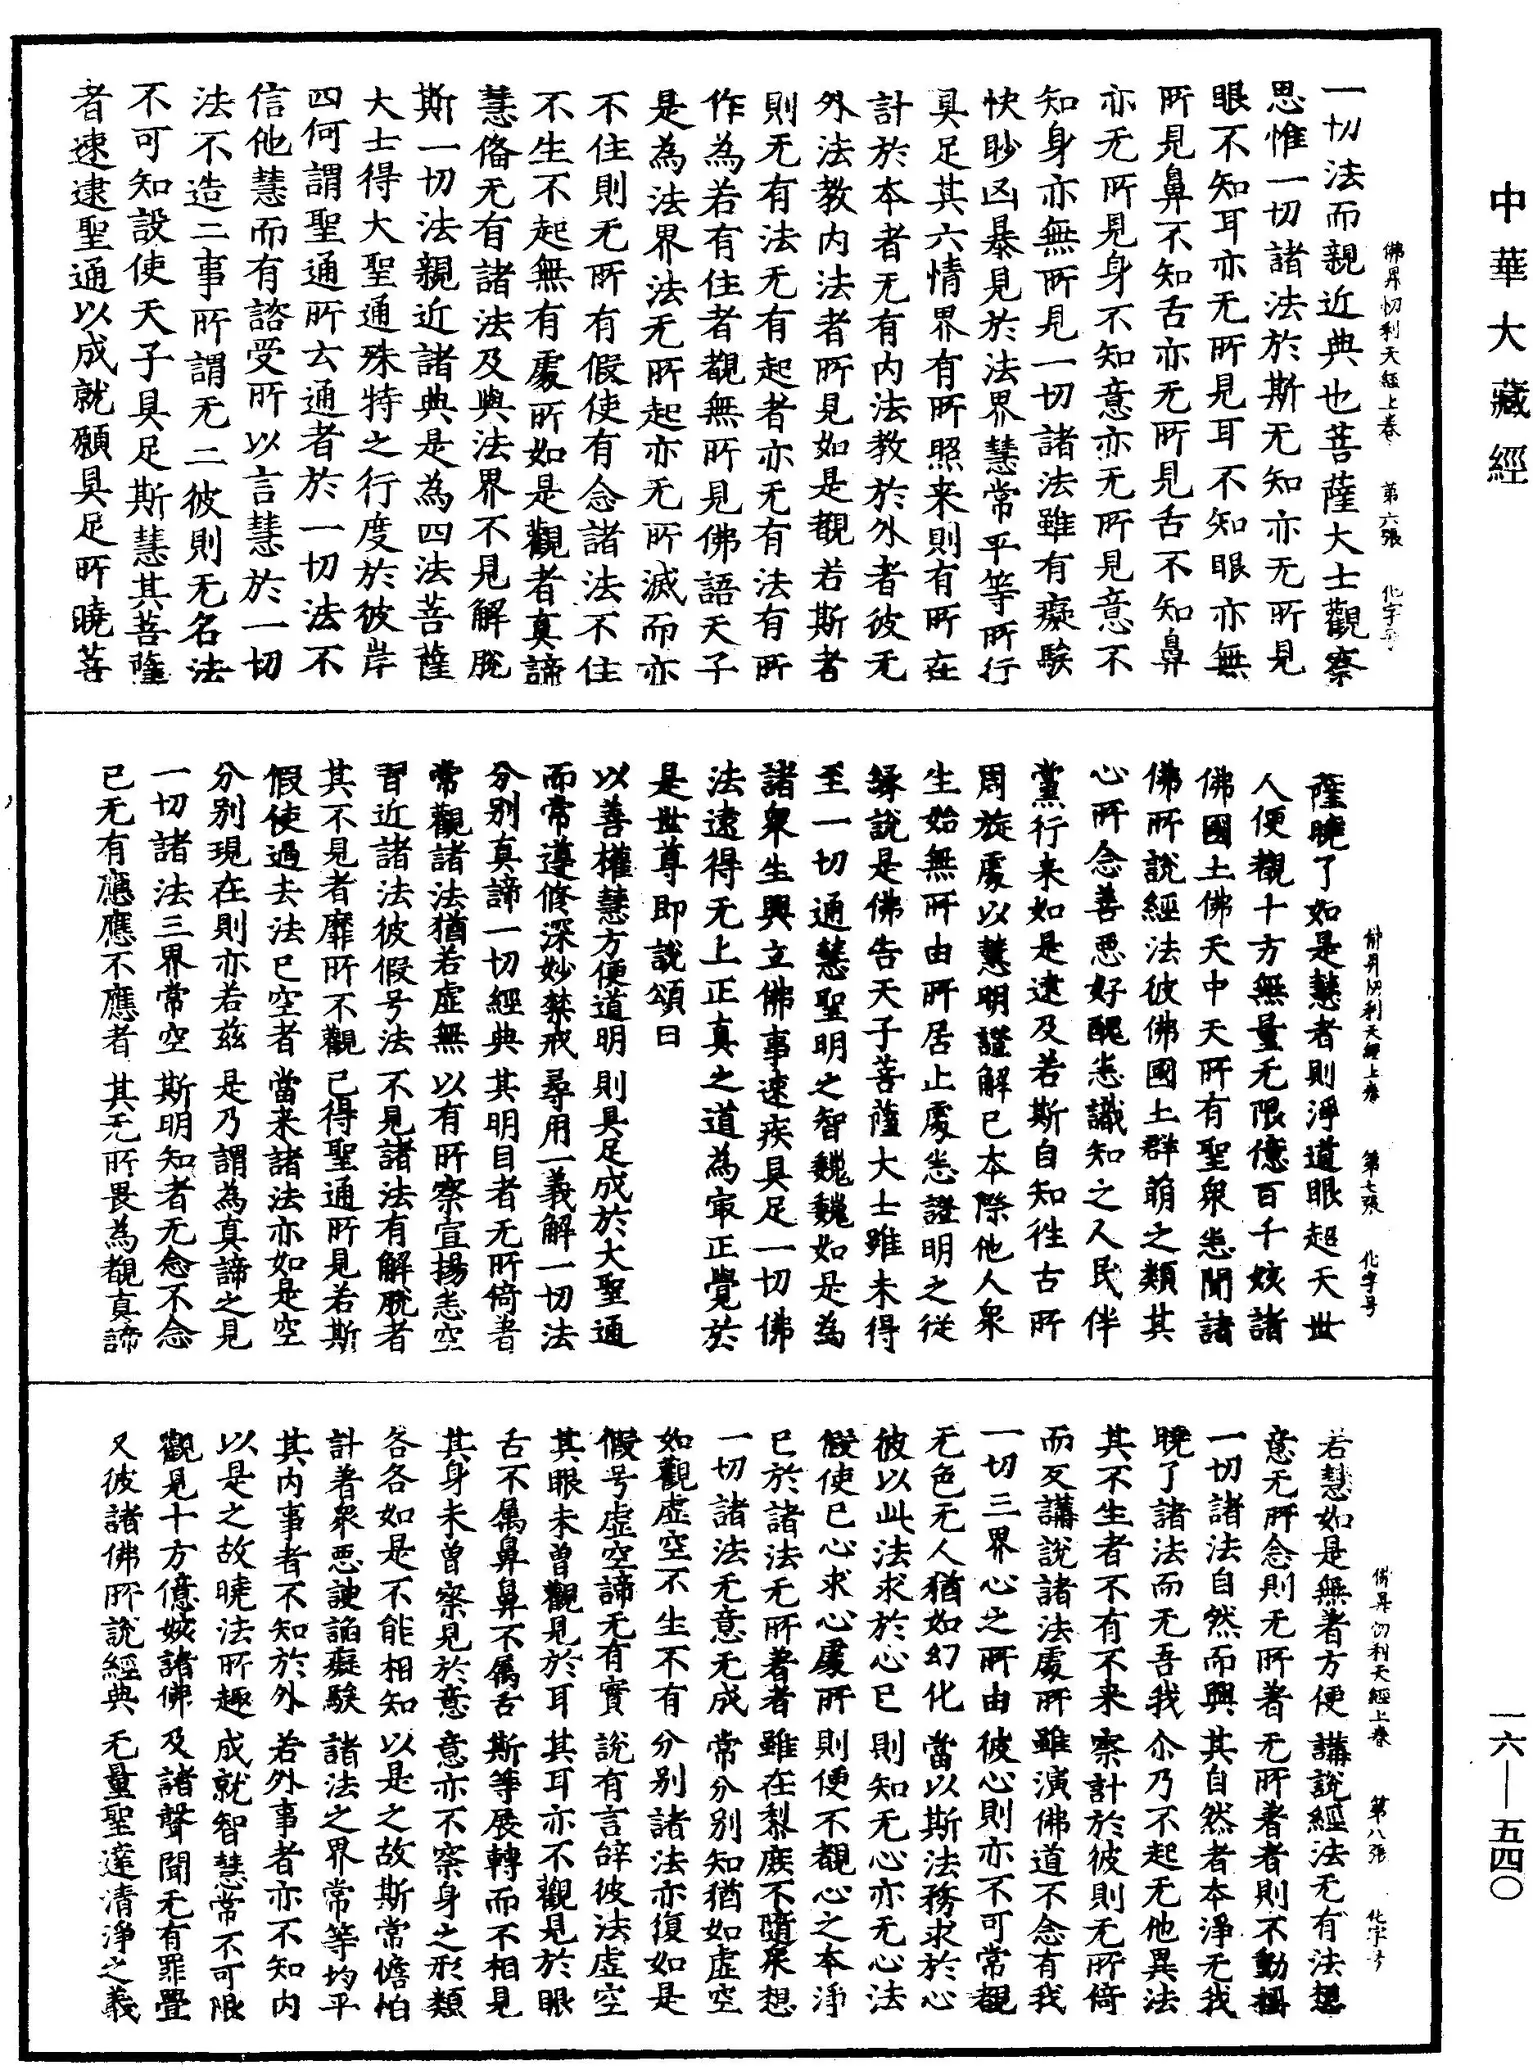 中華大藏經
佛昇忉利天經上卷 第六張 化字号
一切法而親近典也菩薩大士觀察
思惟一切諸法於斯无知亦无所見
眼不知耳亦无所見耳不知眼亦無
所見鼻不知舌亦无所見舌不知鼻
亦无所見身不知意亦无所見意不
知身亦無所見一切諸法雖有癡騃
快眇凶暴見於法界慧常平等所行
具足其六情界有所照来則有所在
計於本者无有内法教於外者彼无
外法教内法者所見如是觀若斯者
則无有法无有起者亦无有法有所
作為若有住者觀無所見佛語天子
是為法界法无所起亦无所滅而亦
不住則无所有假使有念諸法不住
不生不起無有處所如是觀者真諦
慧俻无有諸法及與法界不見解脫
斯一切法親近諸典是為四法菩薩
大士得大聖通殊特之行度於彼岸
四何謂聖通所云通者於一切法不
信他慧而有諮受所以言慧於一切
法不造二事所謂无二彼則无名法
不可知設使天子具足斯慧其菩薩
者速逮聖通以成就願具足所曉菩
佛昇忉利天經上卷 第七張 化字号
薩曉了如是慧者則淨道眼超天世
人便觀十方無量无限億百千姟諸
佛國土佛天中天所有聖衆悉聞諸
佛所說經法彼佛國土群萌之類其
心所念善惡好醜悉識知之人民伴
黨行来如是逮及若斯自知徃古所
周旋處以慧明證解已本際他人衆
生始無所由所居止處悉證明之従
縁說是佛告天子菩薩大士雖未得
至一切通慧聖明之智巍巍如是為
諸衆生興立佛事速疾具足一切佛
法逮得无上正真之道為㝡正覺於
是世尊即說頌曰
以善權慧方便道明 則具足成於大聖通
而常遵修深妙禁戒 尋用一義解一切法
分別真諦一切經典 其明目者无所倚著
常觀諸法猶若虛無 以有所察宣揚悉空
習近諸法彼假号法 不見諸法有解脫者
其不見者靡所不觀 己得聖通所見若斯
假使過去法已空者 當来諸法亦如是空
分別現在則亦若茲 是乃謂為真諦之見
一切諸法三界常空 斯明知者无念不念
已无有應應不應者 其无所畏為觀真諦
佛昇忉利天經上卷 第八張 化字号
若慧如是無者方便 講說經法无有法想
意无所念則无所著 无所著者則不動摇
一切諸法自然而興 其自然者本淨无我
曉了諸法而无吾我 尒乃不起无他異法
其不生者不有不来 察計於彼則无所倚
而反講說諸法處所 雖演佛道不念有我
一切三界心之所由 彼心則亦不可常觀
无色无人猶如幻化 當以斯法務求於心
彼以此法求於心已 則知无心亦无心法
假使已心求心處所 則便不觀心之本淨
已於諸法无所著者 雖在黎庶不隨衆想
一切諸法无意无成 常分別知猶如虛空
如觀虛空不生不有 分別諸法亦復如是
假号虛空諦无有實 說有言辝彼法虛空
其眼未曾觀見於耳 其耳亦不觀見於眼
舌不属鼻鼻不属舌 斯等展轉而不相見
其身未曾察見於意 意亦不察身之形類
各各如是不能相知 以是之故斯常憺怕
計著衆惡諛諂癡騃 諸法之界常等均平
其内事者不知於外 若外事者亦不知内
以是之故曉法所趣 成就智慧常不可限
觀見十方億姟諸佛 及諸聲聞无有罪畳
又彼諸佛所說經典 无量聖達清淨之義
一六——五四〇